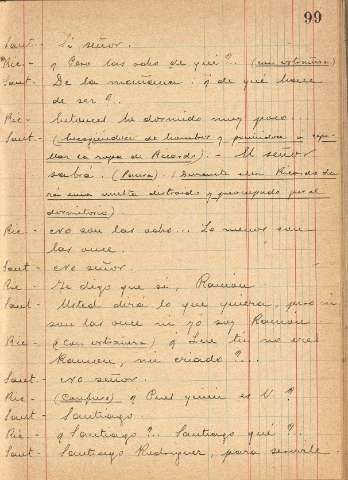 99
Sant - Si señor.
Ric - ¿ Pero las ocho de qué?.. (con extrañeza)
Sant - De la mañana. ¿ de que hace
de ser?..
Ric - Entonces he dormido muy poco...
Sant - (Encogiendose de hombros y poniendose a cepi-
llar la ropa de Ricardo). - El señor
sabrá. (Pausa). (Durante ella Ricardo da
rá una vuelta distraido y preocupado por el
dormitorio)
Ric - No son las ocho... Lo menos son
las once.
Sant - No señor.
Ric - Te digo que si, Ramón
Sant - Usted dirá lo que quiera, pero ni
son las once ni yo soy Ramón
Ric - (Con extrañeza) ¿ Que tú no eres
Ramón, mi criado?...
Sant - No señor.
Ric - (Confuso) ¿ Pues quien es V.?
Sant - Santiago.
Ric - ¿ Santiago?.. Santiago qué?...
Sant - Santiago Rodriguez, para servirle.